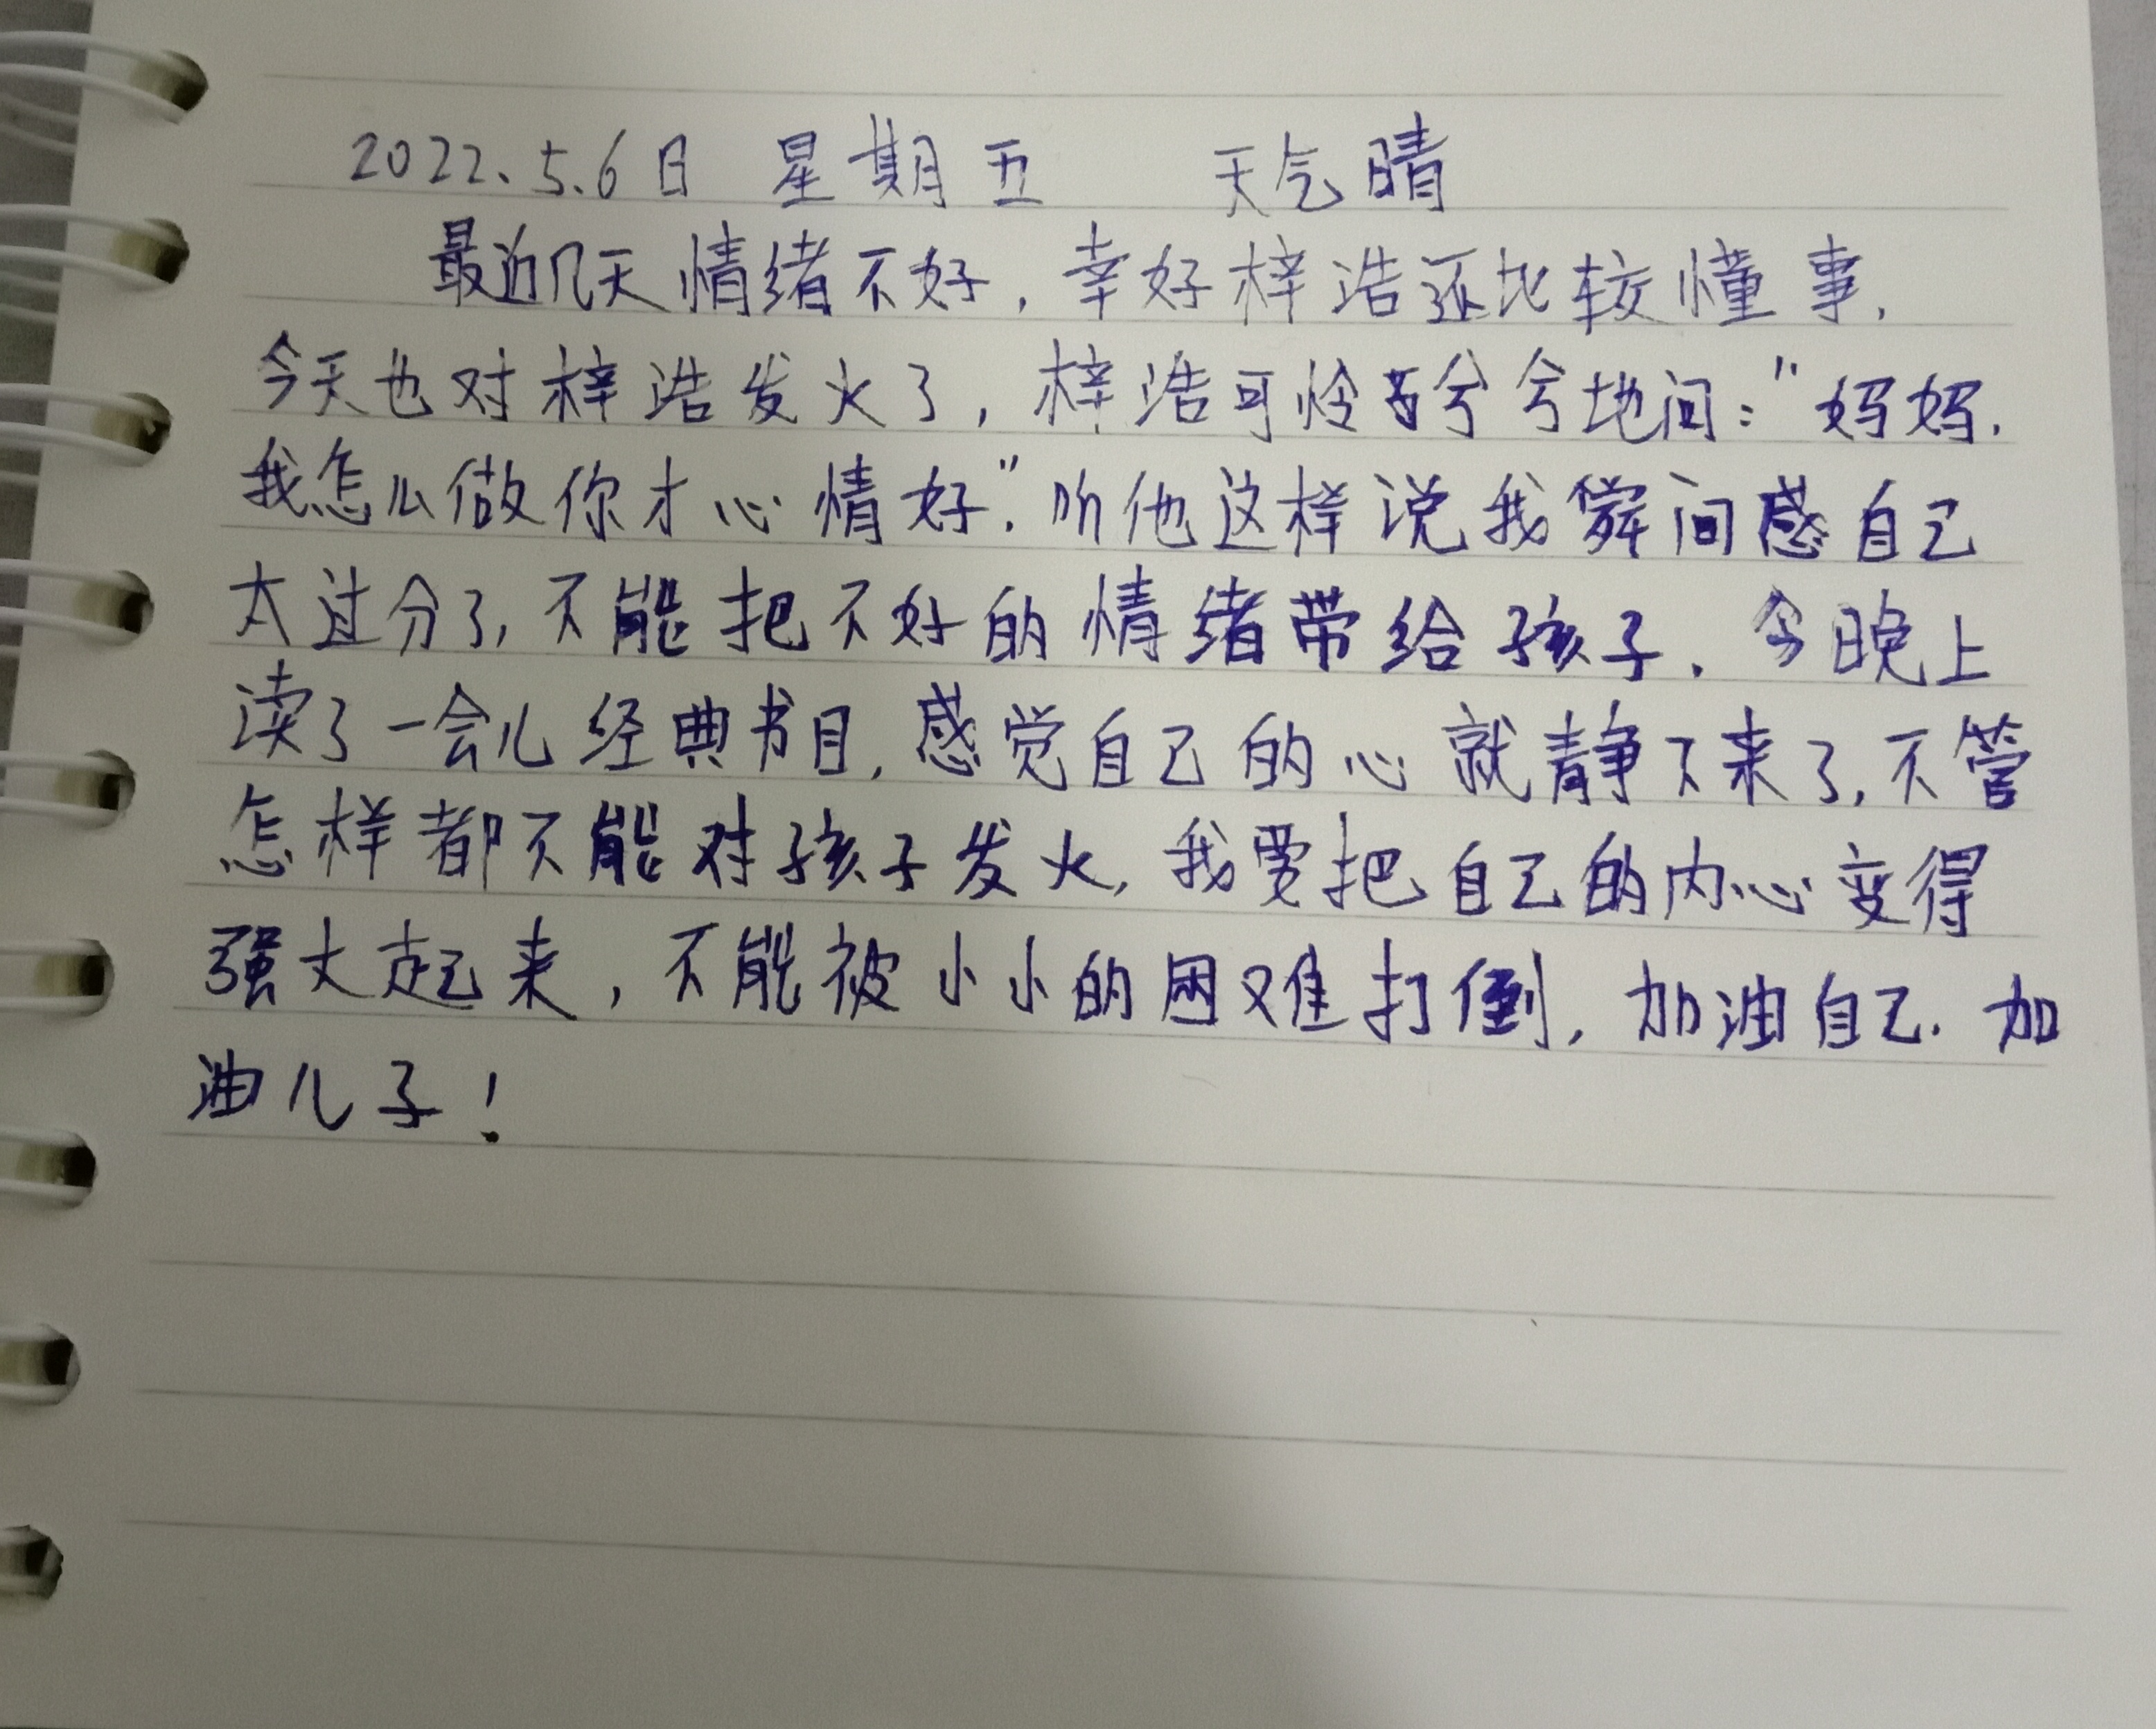 2022.5.6日 星期五 天气晴
最近几天情绪不好,幸好梓浩还比较懂事.
今天也对梓浩发火了,梓浩可怜兮兮地问:"妈妈.
我怎么做你才心情好".听他这样说我瞬间感自己
太过分了,不能把不好的情绪带给孩子.今晚上
读了一会儿经典书目,感觉自己的心就静下来了,不管
怎样都不能对孩子发火,我要把自己的内心变得
强大起来,不能被小小的困难打倒,加油自己.加
油儿子!